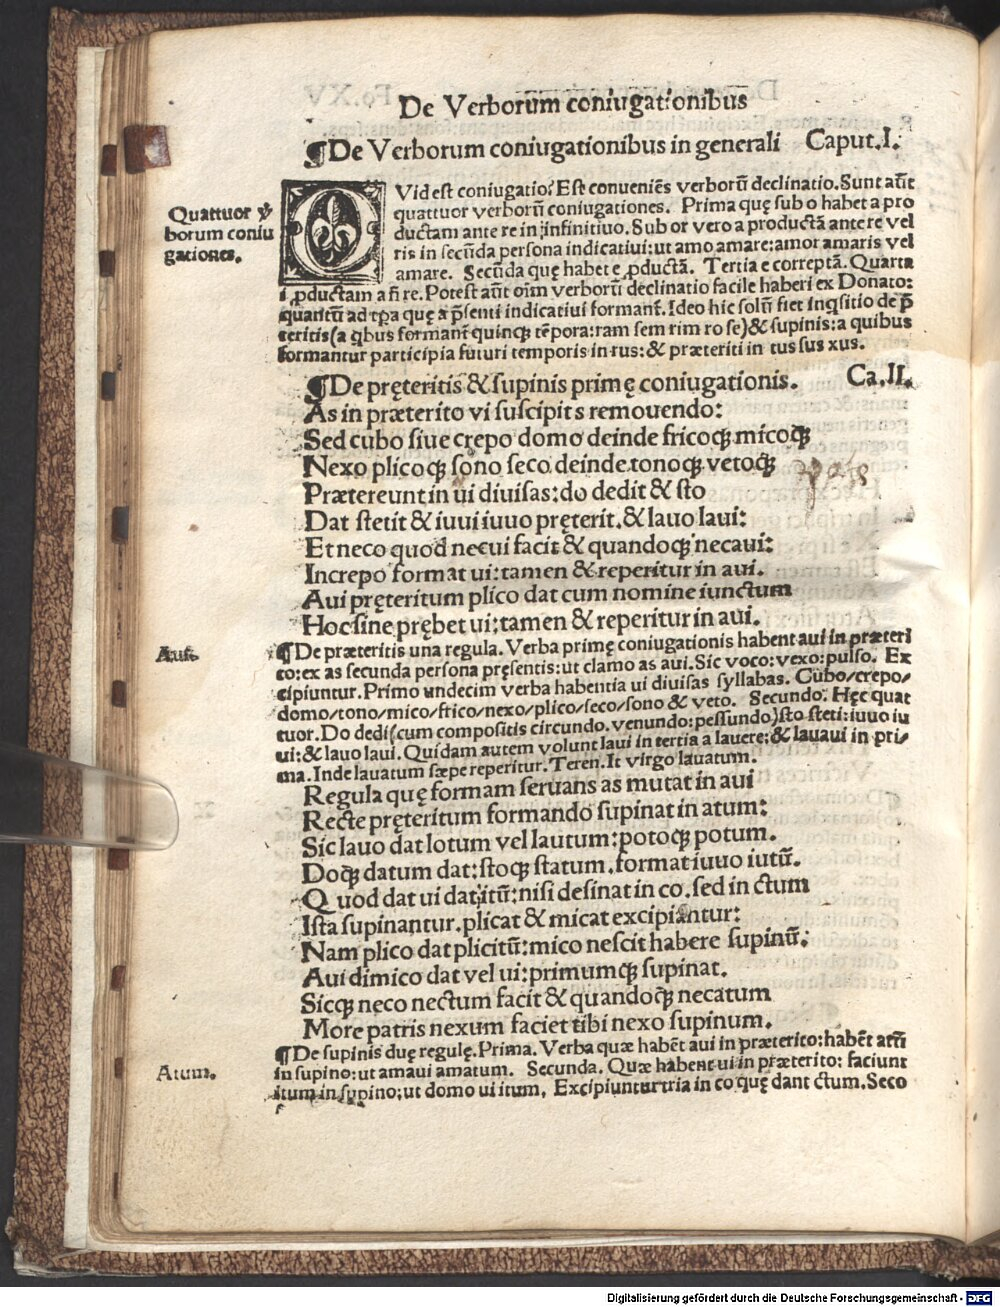 De Verborum coniugationibus
¶De Verborum coniugationibus in generali Caput.I.
Quattuor ṽ
borum coniu
gationes.
QVid est coniugatio? Est conueniẽs verborũ declinatio. Sunt aũt
quattuor verborũ coniugationes. Prima quę sub o habet a pro
ductam ante re in infinitiuo. Sub or vero a productã ante re vel
ris in secũda persona indicatiui: ut amo amare: amor amaris vel
amare. Secũda quę habet e ꝓductã. Tertia e correptã. Quarta
i ꝓductam añ re. Potest aũt oĩm verborũ declinatio facile haberi ex Donato:
quantũ ad tꝑa quę a p̃senti indicatiui formant̃. Ideo hic solũ fiet inq̃sitio de p̃
teritis (a q̃bus formant̃ quinqꝫ tẽpora: ram sem rim ro se) & supinis: a quibus
formantur participia futuri temporis in rus: & præteriti in tus sus xus.
¶De pręteritis & supinis primę coniugationis. Ca.II.
As in præterito vi suscipit s remouendo:
Sed cubo siue crepo domo deinde fricoqꝫ micoqꝫ
Nexo plicoqꝫ sono seco deinde tonoqꝫ vetoqꝫ
Prætereunt in ui diuisas: do dedit & sto
Dat stetit & iuui iuuo pręterit. & lauo laui:
Et neco quod necui facit & quandoqꝫ necaui:
Increpo format ui: tamen & reperitur in aui.
Aui pręteritum plico dat cum nomine iunctum
Hoc sine prębet ui: tamen & reperitur in aui.
Aui.
¶De præteritis una regula. Verba primę coniugationis habent aui in præteri
to: ex as secunda persona pręsentis: ut clamo as aui. Sic voco: vexo: pulso. Ex
cipiuntur. Primo undecim verba habentia ui diuisas syllabas. Cubo/crepo/
domo/tono/mico/frico/nexo/plico/seco/sono & veto. Secundo. Hęc quat
tuor. Do dedi (cum compositis circundo. venundo: pessundo) sto steti: iuuo iu
ui: & lauo laui. Quidam autem volunt laui in tertia a lauere: & lauaui in pri/
ma. Inde lauatum sæpe reperitur. Teren. It virgo lauatum.
Regula quę formam seruans as mutat in aui
Recte pręteritum formando supinat in atum:
Sic lauo dat lotum vel lautum: potoqꝫ potum.
Doqꝫ datum dat: stoqꝫ statum. format iuuo iutũ.
Quod dat ui dat itũ: nisi desinat in co. sed in ctum
Ista supinantur. plicat & micat excipiantur:
Nam plico dat plicitũ: mico nescit habere supinũ:
Aui dimico dat vel ui: primumqꝫ supinat.
Sicqꝫ neco nectum facit & quandoqꝫ necatum
More patris nexum faciet tibi nexo supinum.
Atum.
¶De supinis duę regulę. Prima. Verba quæ habẽt aui in præterito: habẽt atũ
in supino: ut amaui amatum. Secunda. Quæ habent ui in præterito: faciunt
itum in supino: ut domo ui itum. Excipiuntur tria in co quę dant ctum. Seco
Digitalisierung gefördert durch die Deutsche Forschungsgemeinschaft - DFG